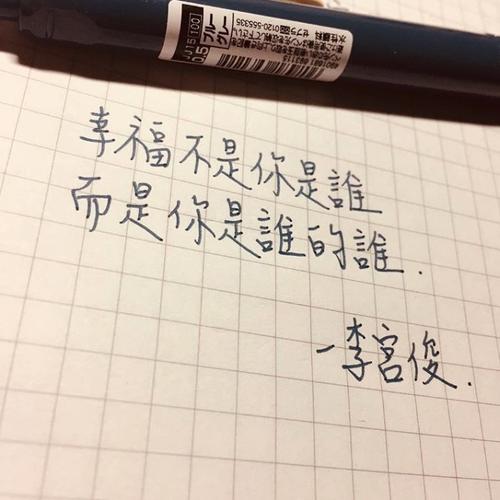 JJ15(100)
0.5
ブルー
グレー
水性顔料
ゼブラ 0120-555335
幸福不是你是誰
而是你是誰的誰.
-李宮俊.